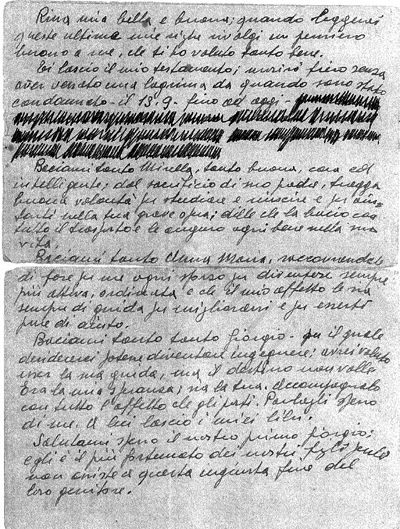 Rina mia bella e buona; quando leggerai
queste ultime mie righe rivolgi un pensiero
buono a me, che ti ho voluto tanto bene.
Lei lascio il mio testamento; morirò fiero senza
aver versato una lagrima da quando sono stato
condannato - il 13.9. fino ad oggi -
Baciami tanto Mirella, tanto buona, cara ed
intelligente; dal sacrificio di suo padre, tragga
buona volontà per studiare e riuscire e per
nella tua grave opera; dille che la bacio con
tutto il trasporto e le auguro ogni bene nella sua
vita.
Baciami tanto Anna Maria, raccomandale
di fare per me ogni sforzo per diventare sempre
più attiva, ordinata e che il mio affetto le sia
sempre di guida per migliorarsi e per esserti
pure di aiuto.
Baciami tanto tanto Giorgio - per il quale
desideravo potesse diventare ingegnere; avrei voluto
esser la sua guida, ma il destino non volle.
Era la mia speranza; sia la tua. Accompagnalo
con tutto l'affetto che gli porti. Parlagli spesso
di me. A lui lascio i miei libri.
Salutami spesso il nostro primo Giorgio;
egli è il più fortunato dei nostri figli, perché
non assiste a questa ingiusta fine del
loro genitore.